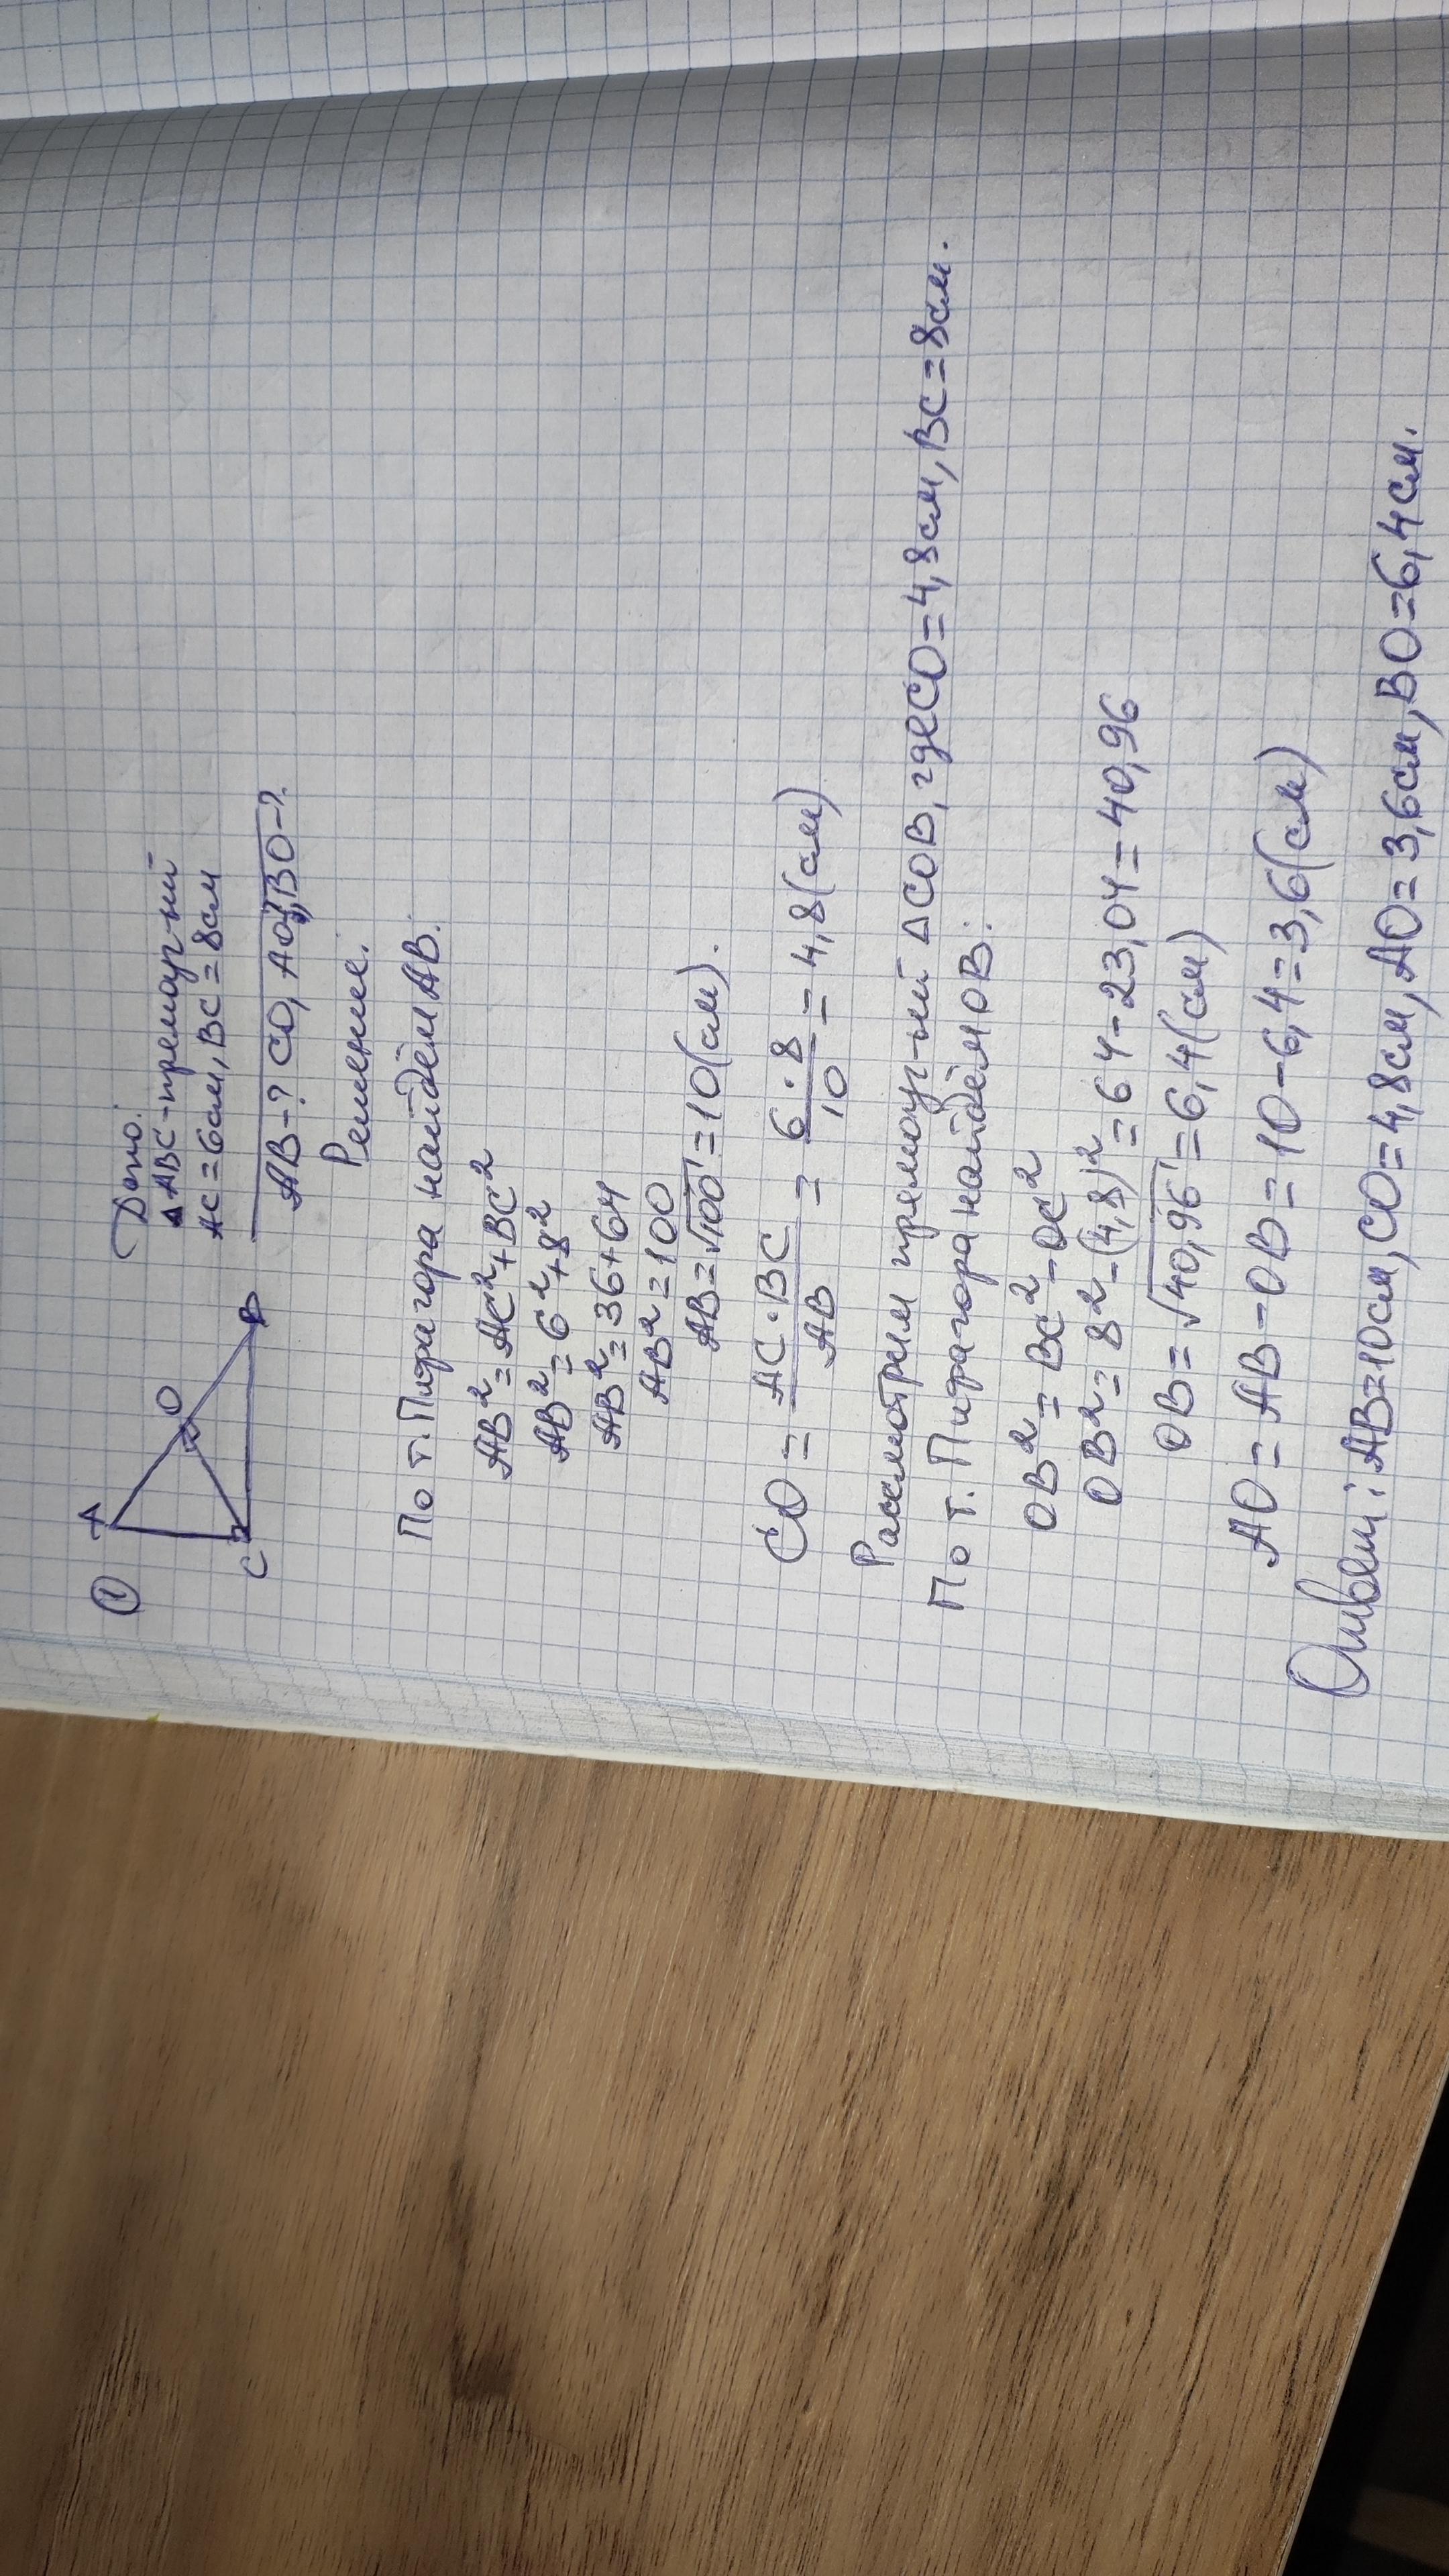 ①
A
O
C
B
Дано:
△ABC-прямоуг-ный
AC=6см, BC=8см
AB-? CO, AO, BO-?
Решение:
По т. Пифагора найдём AB:
AB²=AC²+BC²
AB²=6²+8²
AB²=36+64
AB²=100
AB=√100=10(см).
CO = AC·BC/AB = 6·8/10 = 4,8(см)
Рассмотрим прямоуг-ный △COB, где CO=4,8см, BC=8см.
По т. Пифагора найдём OB:
OB²=BC²-OC²
OB²=8²-(4,8)²=64-23,04=40,96
OB=√40,96=6,4(см)
AO=AB-OB=10-6,4=3,6(см)
Ответ: AB=10см, CO=4,8см, AO=3,6см, BO=6,4см.